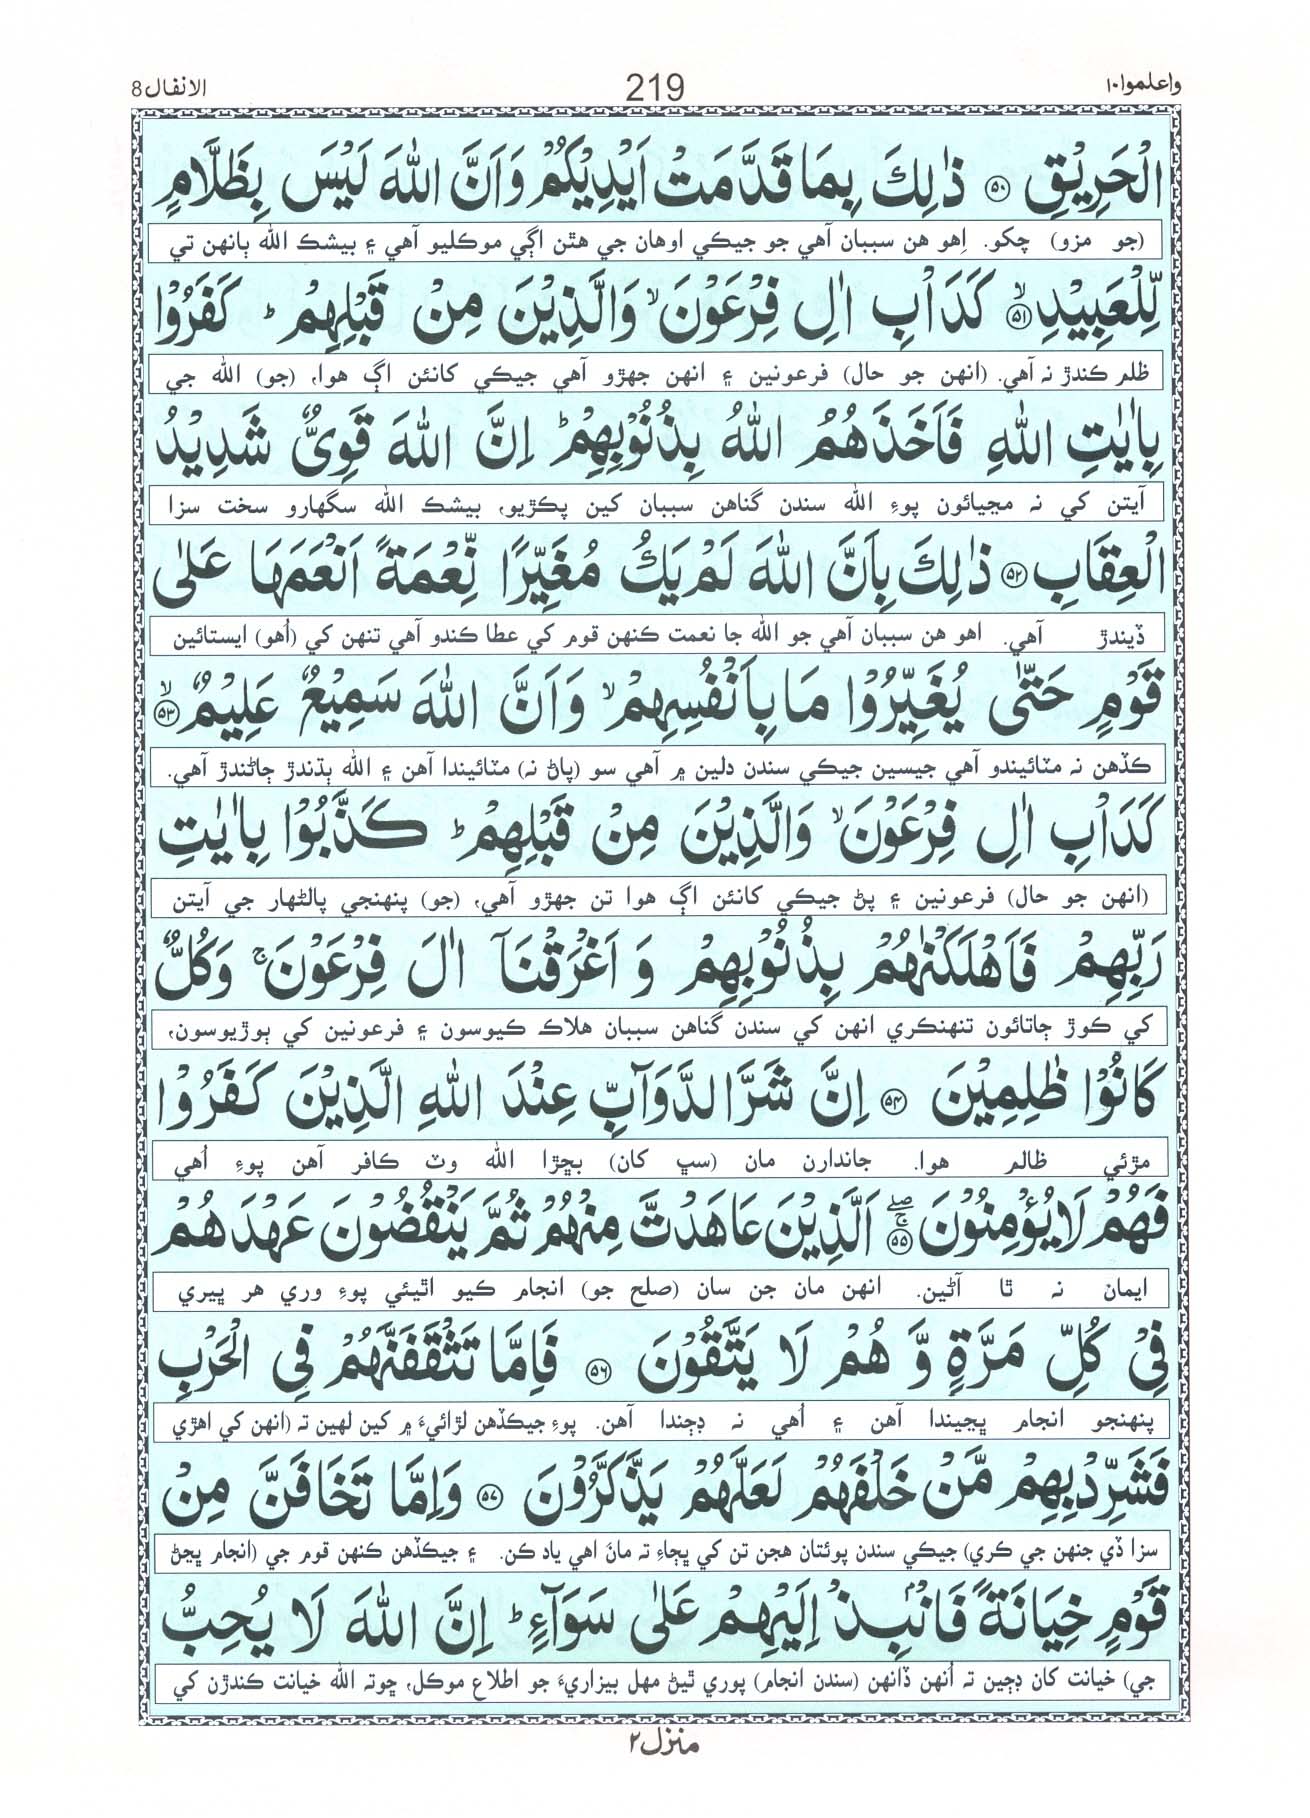 واعلموا۱۰ 219 الانفال8
الْحَرِيْقِ ۝۵۰ ذٰلِكَ بِمَا قَدَّمَتْ اَيْدِيْكُمْ وَاَنَّ اللّٰهَ لَيْسَ بِظَلَّامٍ
(جو مزو) چکو. اِهو هن سببان آهي جو جيڪي اوهان جي هٿن اڳي موڪليو آهي ۽ بيشڪ الله ٻانهن تي
لِّلْعَبِيْدِ ۝۵۱ۙ كَدَاْبِ اٰلِ فِرْعَوْنَۙ وَالَّذِيْنَ مِنْ قَبْلِهِمْؕ كَفَرُوْا
ظلم ڪندڙ نہ آهي. (انهن جو حال) فرعونين ۽ انهن جهڙو آهي جيڪي کانئن اڳ هوا، (جو) الله جي
بِاٰيٰتِ اللّٰهِ فَاَخَذَهُمُ اللّٰهُ بِذُنُوْبِهِمْؕ اِنَّ اللّٰهَ قَوِيٌّ شَدِيْدُ
آيتن کي نہ مڃيائون پوءِ الله سندن گناهن سببان کين پڪڙيو، بيشڪ الله سگهارو سخت سزا
الْعِقَابِ ۝۵۲ ذٰلِكَ بِاَنَّ اللّٰهَ لَمْ يَكُ مُغَيِّرًا نِّعْمَةً اَنْعَمَهَا عَلٰى
ڏيندڙ آهي. اهو هن سببان آهي جو الله جا نعمت ڪنهن قوم کي عطا ڪندو آهي تنهن کي (اُهو) ايستائين
قَوْمٍ حَتّٰى يُغَيِّرُوْا مَا بِاَنْفُسِهِمْۙ وَاَنَّ اللّٰهَ سَمِيْعٌ عَلِيْمٌ ۝۵۳ۙ
ڪڏهن نہ مٽائيندو آهي جيسين جيڪي سندن دلين ۾ آهي سو (پاڻ نہ) مٽائيندا آهن ۽ الله ٻڌندڙ ڄاڻندڙ آهي.
كَدَاْبِ اٰلِ فِرْعَوْنَۙ وَالَّذِيْنَ مِنْ قَبْلِهِمْؕ كَذَّبُوْا بِاٰيٰتِ
(انهن جو حال) فرعونين ۽ پڻ جيڪي کانئن اڳ هوا تن جهڙو آهي، (جو) پنهنجي پالڻهار جي آيتن
رَبِّهِمْ فَاَهْلَكْنٰهُمْ بِذُنُوْبِهِمْ وَاَغْرَقْنَاۤ اٰلَ فِرْعَوْنَۚ وَكُلٌّ
کي ڪوڙ ڄاتائون تنهنڪري انهن کي سندن گناهن سببان هلاڪ ڪيوسون ۽ فرعونين کي ٻوڙيوسون،
كَانُوْا ظٰلِمِيْنَ ۝۵۴ اِنَّ شَرَّ الدَّوَآبِّ عِنْدَ اللّٰهِ الَّذِيْنَ كَفَرُوْا
مڙئي ظالم هوا. جاندارن مان (سڀ کان) بڇڙا الله وٽ ڪافر آهن پوءِ اُهي
فَهُمْ لَا يُؤْمِنُوْنَ ۝۵۵ۖۚ اَلَّذِيْنَ عَاهَدْتَّ مِنْهُمْ ثُمَّ يَنْقُضُوْنَ عَهْدَهُمْ
ايمان نہ ٿا آڻين. انهن مان جن سان (صلح جو) انجام ڪيو اٿيئي پوءِ وري هر ڀيري
فِيْ كُلِّ مَرَّةٍ وَّهُمْ لَا يَتَّقُوْنَ ۝۵۶ فَاِمَّا تَثْقَفَنَّهُمْ فِي الْحَرْبِ
پنهنجو انجام ڀڃيندا آهن ۽ اُهي نہ ڊڄندا آهن. پوءِ جيڪڏهن لڙائيءَ ۾ کين لهين تہ (انهن کي اهڙي
فَشَرِّدْ بِهِمْ مَّنْ خَلْفَهُمْ لَعَلَّهُمْ يَذَّكَّرُوْنَ ۝۵۷ وَاِمَّا تَخَافَنَّ مِنْ
سزا ڏي جنهن جي ڪري) جيڪي سندن پوئتان هجن تن کي ڀڄاءِ تہ مانَ اهي ياد ڪن. ۽ جيڪڏهن ڪنهن قوم جي (انجام ڀڃڻ
قَوْمٍ خِيَانَةً فَانْۢبِذْ اِلَيْهِمْ عَلٰى سَوَآءٍؕ اِنَّ اللّٰهَ لَا يُحِبُّ
جي) خيانت کان ڊڄين تہ اُنهن ڏانهن (سندن انجام) پوري ٿيڻ مهل بيزاريءَ جو اطلاع موڪل، ڇوتہ الله خيانت ڪندڙن کي
منزل۲